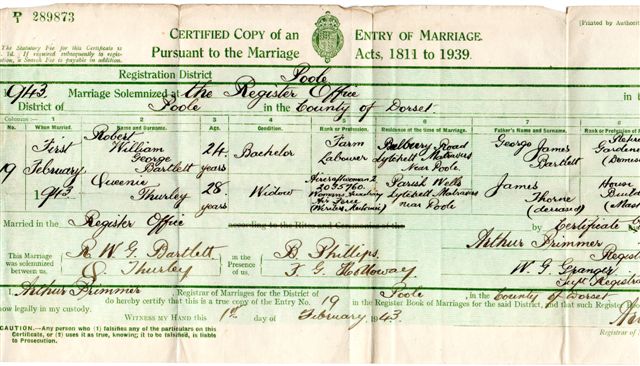 P 289873
1
The Statutory Fee for this Certificate is
2s. 7d. If required subsequently to regis-
tration, a Search Fee is payable in addition.
CERTIFIED COPY of an ENTRY OF MARRIAGE.
Pursuant to the Marriage Acts, 1811 to 1939.
[Printed by Authorit
Registration District Poole
1943. Marriage Solemnized at the Register Office
District of Poole in the County of Dorset in t
Columns :— 1 2 3 4 5 6 7 8
No. When Married. Name and Surname. Age. Condition. Rank or Profession. Residence at the time of Marriage. Father's Name and Surname. Rank or Profession of
19 First February 1943
Robert William George Bartlett 24 years Bachelor Farm Labourer Road Lytchett Matravers near Poole George James Bartlett Retire Gardene
Queenie Thurley 28 years Widow Aircraftwoman 2 Womens Auxiliary Air Force Parish Wells Lytchett Matravers near Poole James Thorne (deceased) House
Married in the Register Office according to the Rites and Ceremonies of the by Certificate
This Marriage was solemnized between us,
R W G Bartlett
Q Thurley
in the Presence of us,
B. Phillips
F. G. Holloway
Arthur Primmer Registr
W. G. Granger Supt Registra
Arthur Primmer Registrar of Marriages for the District of Poole, in the County of Dorset
do hereby certify that this is a true copy of the Entry No. 19 in the Register Book of Marriages for the said District, and that such Register Bo
now legally in my custody.
WITNESS MY HAND this 1st day of February, 1943.
CAUTION.—Any person who (1) falsifies any of the particulars on this
Certificate, or (2) uses it as true, knowing it to be falsified, is liable
to Prosecution.
Registrar of